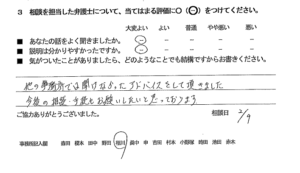 3 相談を担当した弁護士について、当てはまる評価に○(⊖)をつけてください。
大変よい よい 普通 やや悪い 悪い
■ あなたの話をよく聞きましたか。
■ 説明は分かりやすかったですか。
■ 気がついたことがありましたら、どのようなことでも結構ですからお書きください。
他の事務所では聞けなかったアドバイスをして頂きました
今後の相談・手続もお願いしたいと思っております
ご協力ありがとうございました。
相談日 2/9
事務所記入欄 森田 榎本 田中 野田 相川 畠中 申 吉田 村本 小野塚 時田 池田 赤木